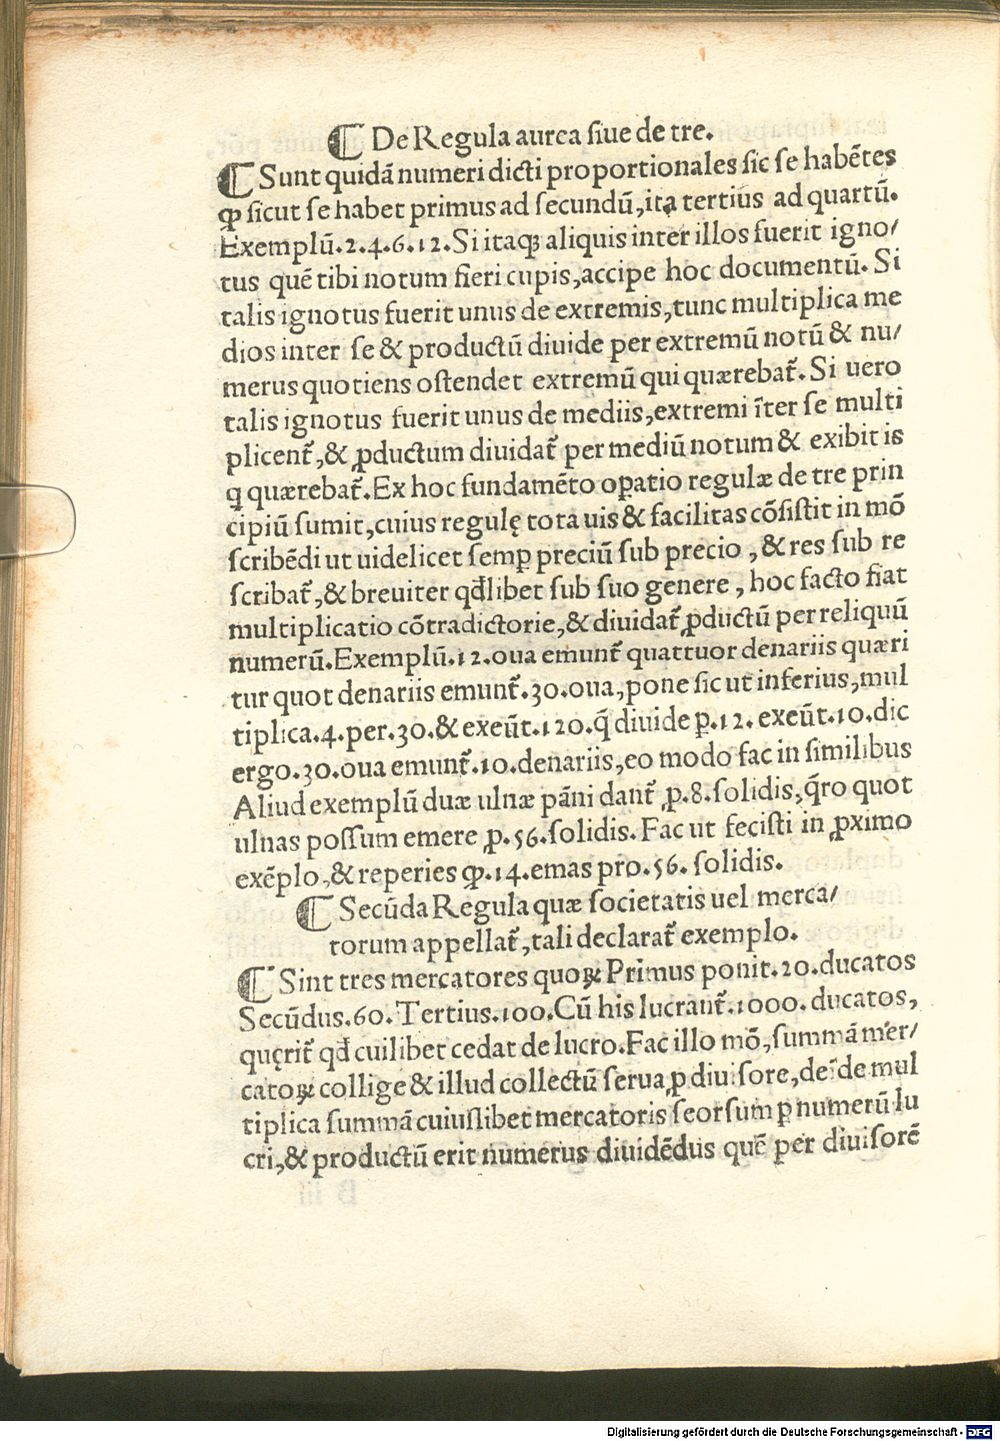 ⸿ De Regula aurea siue de tre.
⸿ Sunt quidã numeri dicti proportionales sic se habẽtes
ꝙ sicut se habet primus ad secundũ, ita tertius ad quartũ.
Exemplũ.2.4.6.12. Si itaqꝫ aliquis inter illos fuerit igno/
tus quẽ tibi notum fieri cupis, accipe hoc documentũ. Si
talis ignotus fuerit unus de extremis, tunc multiplica me
dios inter se & productũ diuide per extremũ notũ & nu/
merus quotiens ostendet extremũ qui quærebat᷑. Si uero
talis ignotus fuerit unus de mediis, extremi ĩter se multi
plicent᷑, & ꝓductum diuidat᷑ per mediũ notum & exibit is
q quærebat᷑. Ex hoc fundamẽto oꝑatio regulæ de tre prin
cipiũ sumit, cuius regulę tota uis & facilitas cõsistit in mõ
scribẽdi ut uidelicet semꝑ preciũ sub precio, & res sub re
scribat᷑, & breuiter qđlibet sub suo genere, hoc facto fiat
multiplicatio cõtradictorie, & diuidat᷑ ꝓductũ per reliquũ
numerũ. Exemplũ.12. oua emunt᷑ quattuor denariis quæri
tur quot denariis emunt᷑.30. oua, pone sic ut inferius, mul
tiplica.4. per.30. & exeũt.120. q̃ diuide ꝑ.12. exeũt.10. dic
ergo.30. oua emunt᷑.10. denariis, eo modo fac in similibus
Aliud exemplũ duæ ulnæ pãni dant᷑ ꝓ.8. solidis, q̃ro quot
ulnas possum emere ꝓ.56. solidis. Fac ut fecisti in ꝓximo
exẽplo, & reperies ꝙ.14. emas pro.56. solidis.
⸿ Secũda Regula quæ societatis uel merca/
torum appellat᷑, tali declarat᷑ exemplo.
⸿ Sint tres mercatores quoꝝ Primus ponit.20. ducatos
Secũdus.60. Tertius.100. Cũ his lucrant᷑.1000. ducatos,
quęrit᷑ qđ cuilibet cedat de lucro. Fac illo mõ, summã mer/
catoꝝ collige & illud collectũ serua ꝓ diuisore, deĩde mul
tiplica summã cuiuslibet mercatoris seorsum ꝑ numerũ lu
cri, & productũ erit numerus diuidẽdus quẽ per diuisorẽ
Digitalisierung gefördert durch die Deutsche Forschungsgemeinschaft - DFG